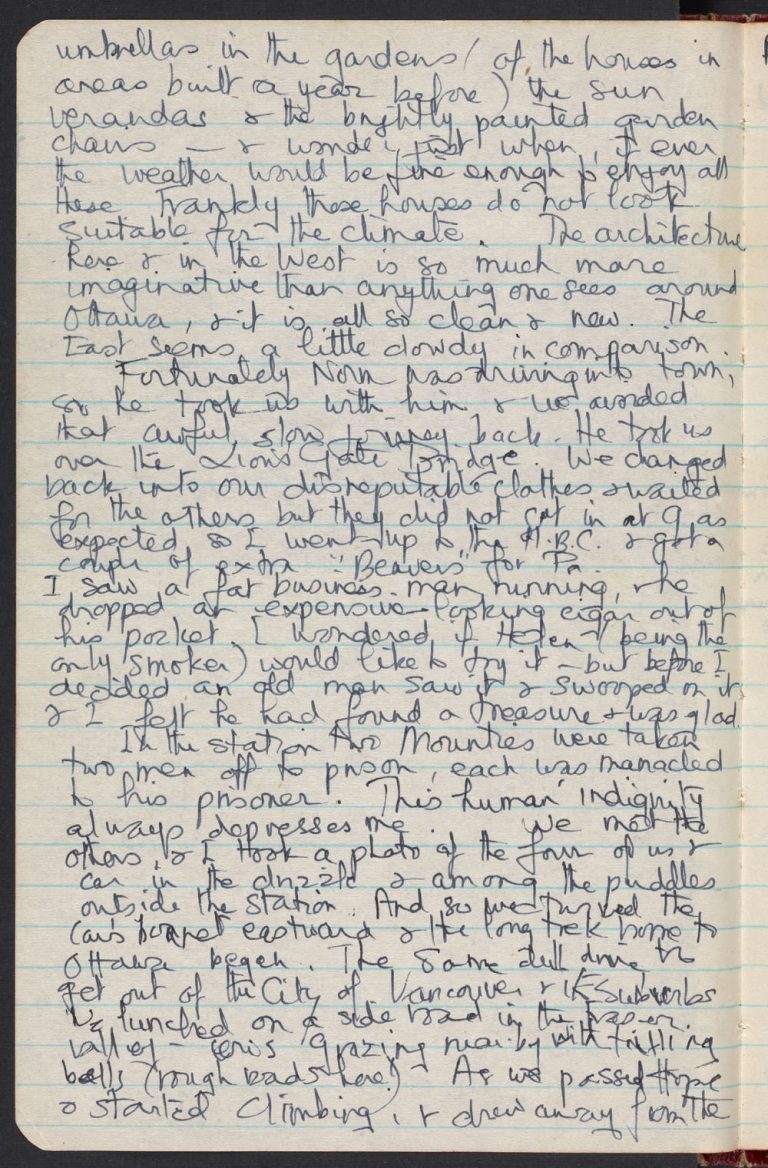 umbrellas in the gardens (of the houses in
areas built a year before) the sun
verandas & the brightly painted garden
chairs — & wonder just when, if ever
the weather would be fine enough to enjoy all
these. Frankly those houses do not look
suitable for the climate. The architecture
here & in the West is so much more
imaginative than anything one sees around
Ottawa, & it is all so clean & new. The
East seems a little dowdy in comparison.
Fortunately Norm was driving into town,
so he took us with him & we avoided
that awful, slow journey back. He took us
over the Lions Gate Bridge. We changed
back into our disreputable clothes & waited
for the others but they did not get in at 9 as
expected so I went up to the H.B.C. & got a
couple of extra "Beavers" for Pa.
I saw a fat business man running, & he
dropped an expensive-looking cigar out of
his pocket. I wondered if Helen (being the
only smoker) would like to try it — but before I
decided an old man saw it & swooped on it
& I felt he had found a treasure & was glad.
In the station two Mounties were taken
two men off to prison, each was manacled
to his prisoner. This human indignity
always depresses me. We met the
others, & I took a photo of the four of us &
car in the drizzle & among the puddles
outside the station. And so we turned the
car's bonnet eastward & the long trek home to
Ottawa began. The same dull drive to
get out of the City of Vancouver & its suburbs
We lunched on a side road in the Fraser
valley — cows grazing near by with tinkling
bells (rough roads here!) As we passed Hope
& started climbing, & drew away from the